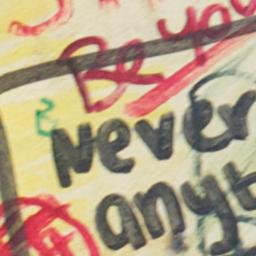 Be you
Never
anyt